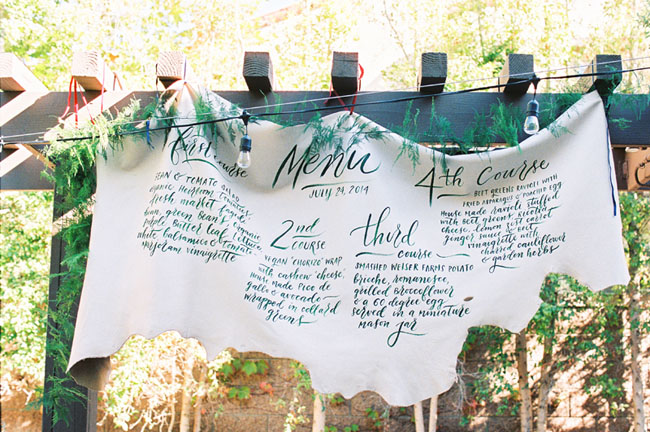 Menu
JULY 24, 2014
first
course
BEAN & TOMATO SALAD
organic Heirloom tomatoes,
fresh market
green beans, organic
purple, Butter leaf lettuce
white balsamic & tomato
marjoram vinaigrette
2nd
COURSE
VEGAN 'CHORIZO' WRAP
with cashow 'cheese',
House made Pico de
gallo & avocado -
wrapped in collard
greens
third
course
SMASHED WEISER FARMS POTATO
Brioche, romanesco,
grilled broccoflower
& a 60 degree egg
served in a miniature
mason jar
4th COURSE
BEET GREENS RAVIOLI WITH
FRIED ASPARAGUS & POACHED EGG
House made Ravioli stuffed
with Beet greens & ricotta
cheese, lemon zest, carrot
ginger sauce & beet
vinaigrette with
charred cauliflower
& garden herbs